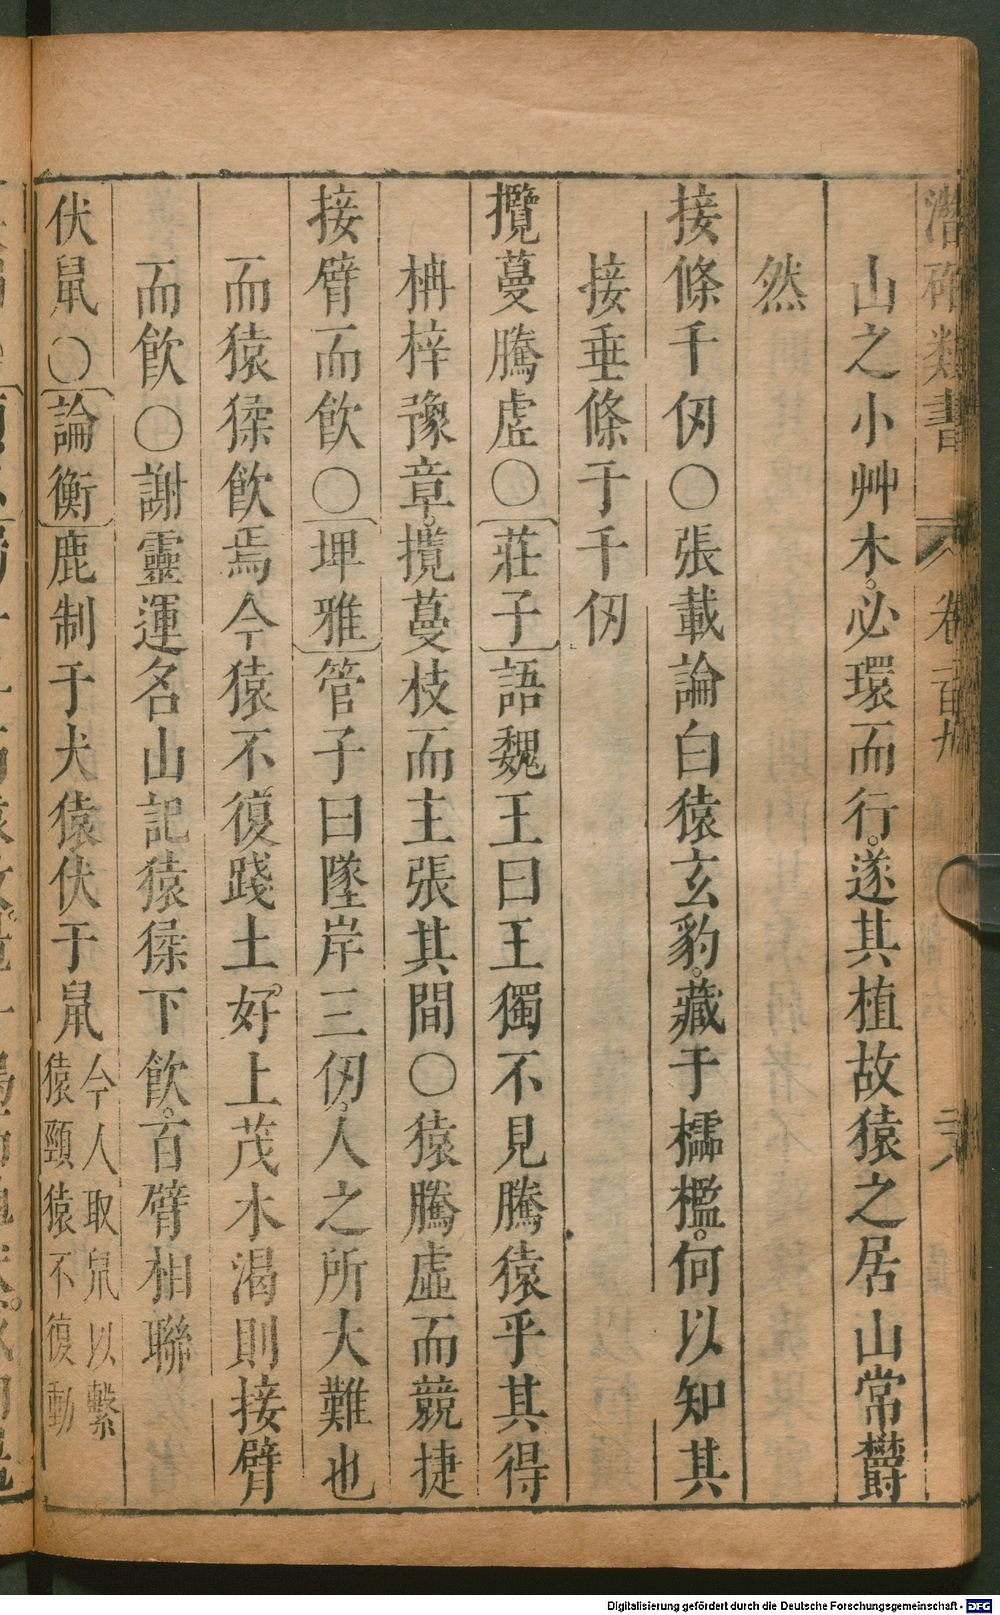 潛確類書 卷一百九
山之小艸木。必環而行。遂其植故猿之居山常欝
然
接條千仭〇張載論白猿玄豹。藏于櫺檻。何以知其
接垂條于千仞
攬蔓騰虛〇莊子語魏王曰王獨不見騰猿乎其得
柟梓豫章。攬蔓枝而主張其間〇猿騰虛而競捷
接臂而飲〇埤雅管子曰墜岸三仭。人之所大難也
而猿猱飲焉今猿不復踐土。好上茂木渴則接臂
而飲〇謝靈運名山記猿猱下飲。百臂相聯
伏鼠〇論衡鹿制于犬猿伏于鼠今人取鼠以繫
猿頸猿不復動
Digitalisierung gefördert durch die Deutsche Forschungsgemeinschaft - DFG